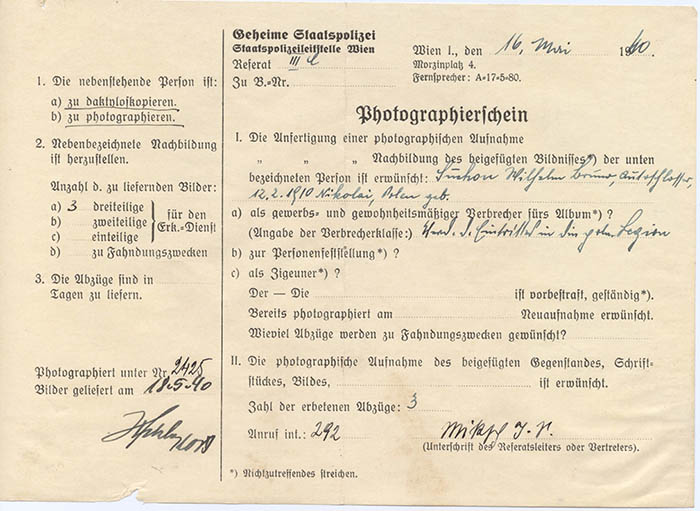 1. Die nebenstehende Person ist:
a) zu daktyloskopieren.
b) zu photographieren.
2. Nebenbezeichnete Nachbildung
ist herzustellen.
Anzahl d. zu liefernden Bilder:
a) 3 dreiteilige
b) zweiteilige
c) einteilige
für den
Erk.-Dienst
d) zu Fahndungszwecken
3. Die Abzüge sind in
Tagen zu liefern.
Photographiert unter Nr. 2425
Bilder geliefert am 18.5.40
Geheime Staatspolizei
Staatspolizeileitstelle Wien
Referat III
Zu B.-Nr.
Wien I., den 16. Mai 1940.
Morzinplatz 4.
Fernsprecher: A-17-5-80.
Photographierschein
I. Die Anfertigung einer photographischen Aufnahme
„ „ „ Nachbildung des beigefügten Bildnisses*) der unten
bezeichneten Person ist erwünscht: Suchon Wilhelm Bruno, Autoschlosser,
12.2.1910 Nikolai, Polen geb.
a) als gewerbs- und gewohnheitsmäßiger Verbrecher fürs Album*) ?
(Angabe der Verbrecherklasse:) Verd. d. Eintrittes in die poln. Legion
b) zur Personenfeststellung*) ?
c) als Zigeuner*) ?
Der — Die ist vorbestraft, geständig*).
Bereits photographiert am Neuaufnahme erwünscht.
Wieviel Abzüge werden zu Fahndungszwecken gewünscht?
II. Die photographische Aufnahme des beigefügten Gegenstandes, Schrift-
stückes, Bildes, ist erwünscht.
Zahl der erbetenen Abzüge: 3
Anruf int.: 292
(Unterschrift des Referatsleiters oder Vertreters).
*) Nichtzutreffendes streichen.